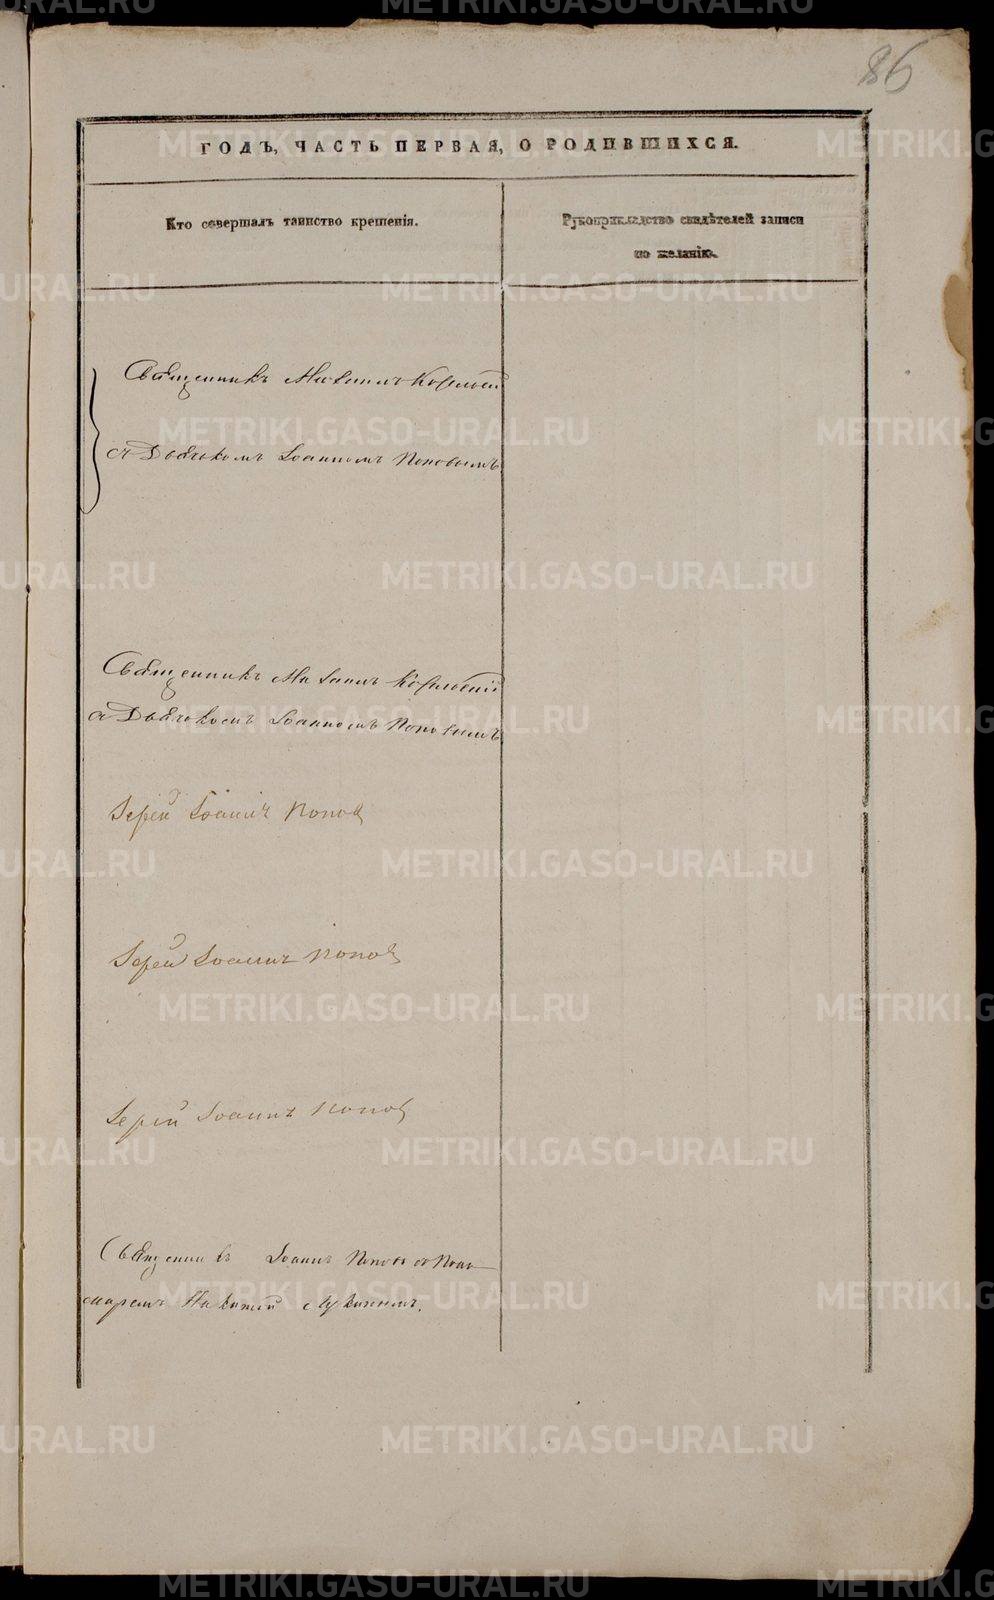 86
ГОДЪ, ЧАСТЬ ПЕРВАЯ, О РОДИВШИХСЯ.
Кто совершалъ таинство крещенія.
Рукоприкладство свидѣтелей записи
по желанію.
Священникъ
съ Дьячкомъ Іоанномъ Поповымъ
Священникъ
съ Дьячкомъ Іоанномъ Поповымъ
Іерей Іоаннъ Попов
Іерей Іоаннъ Попов
Іерей Іоаннъ Попов
Священникъ Іоаннъ Поповъ съ Поно
маремъ
METRIKI.GASO-URAL.RU